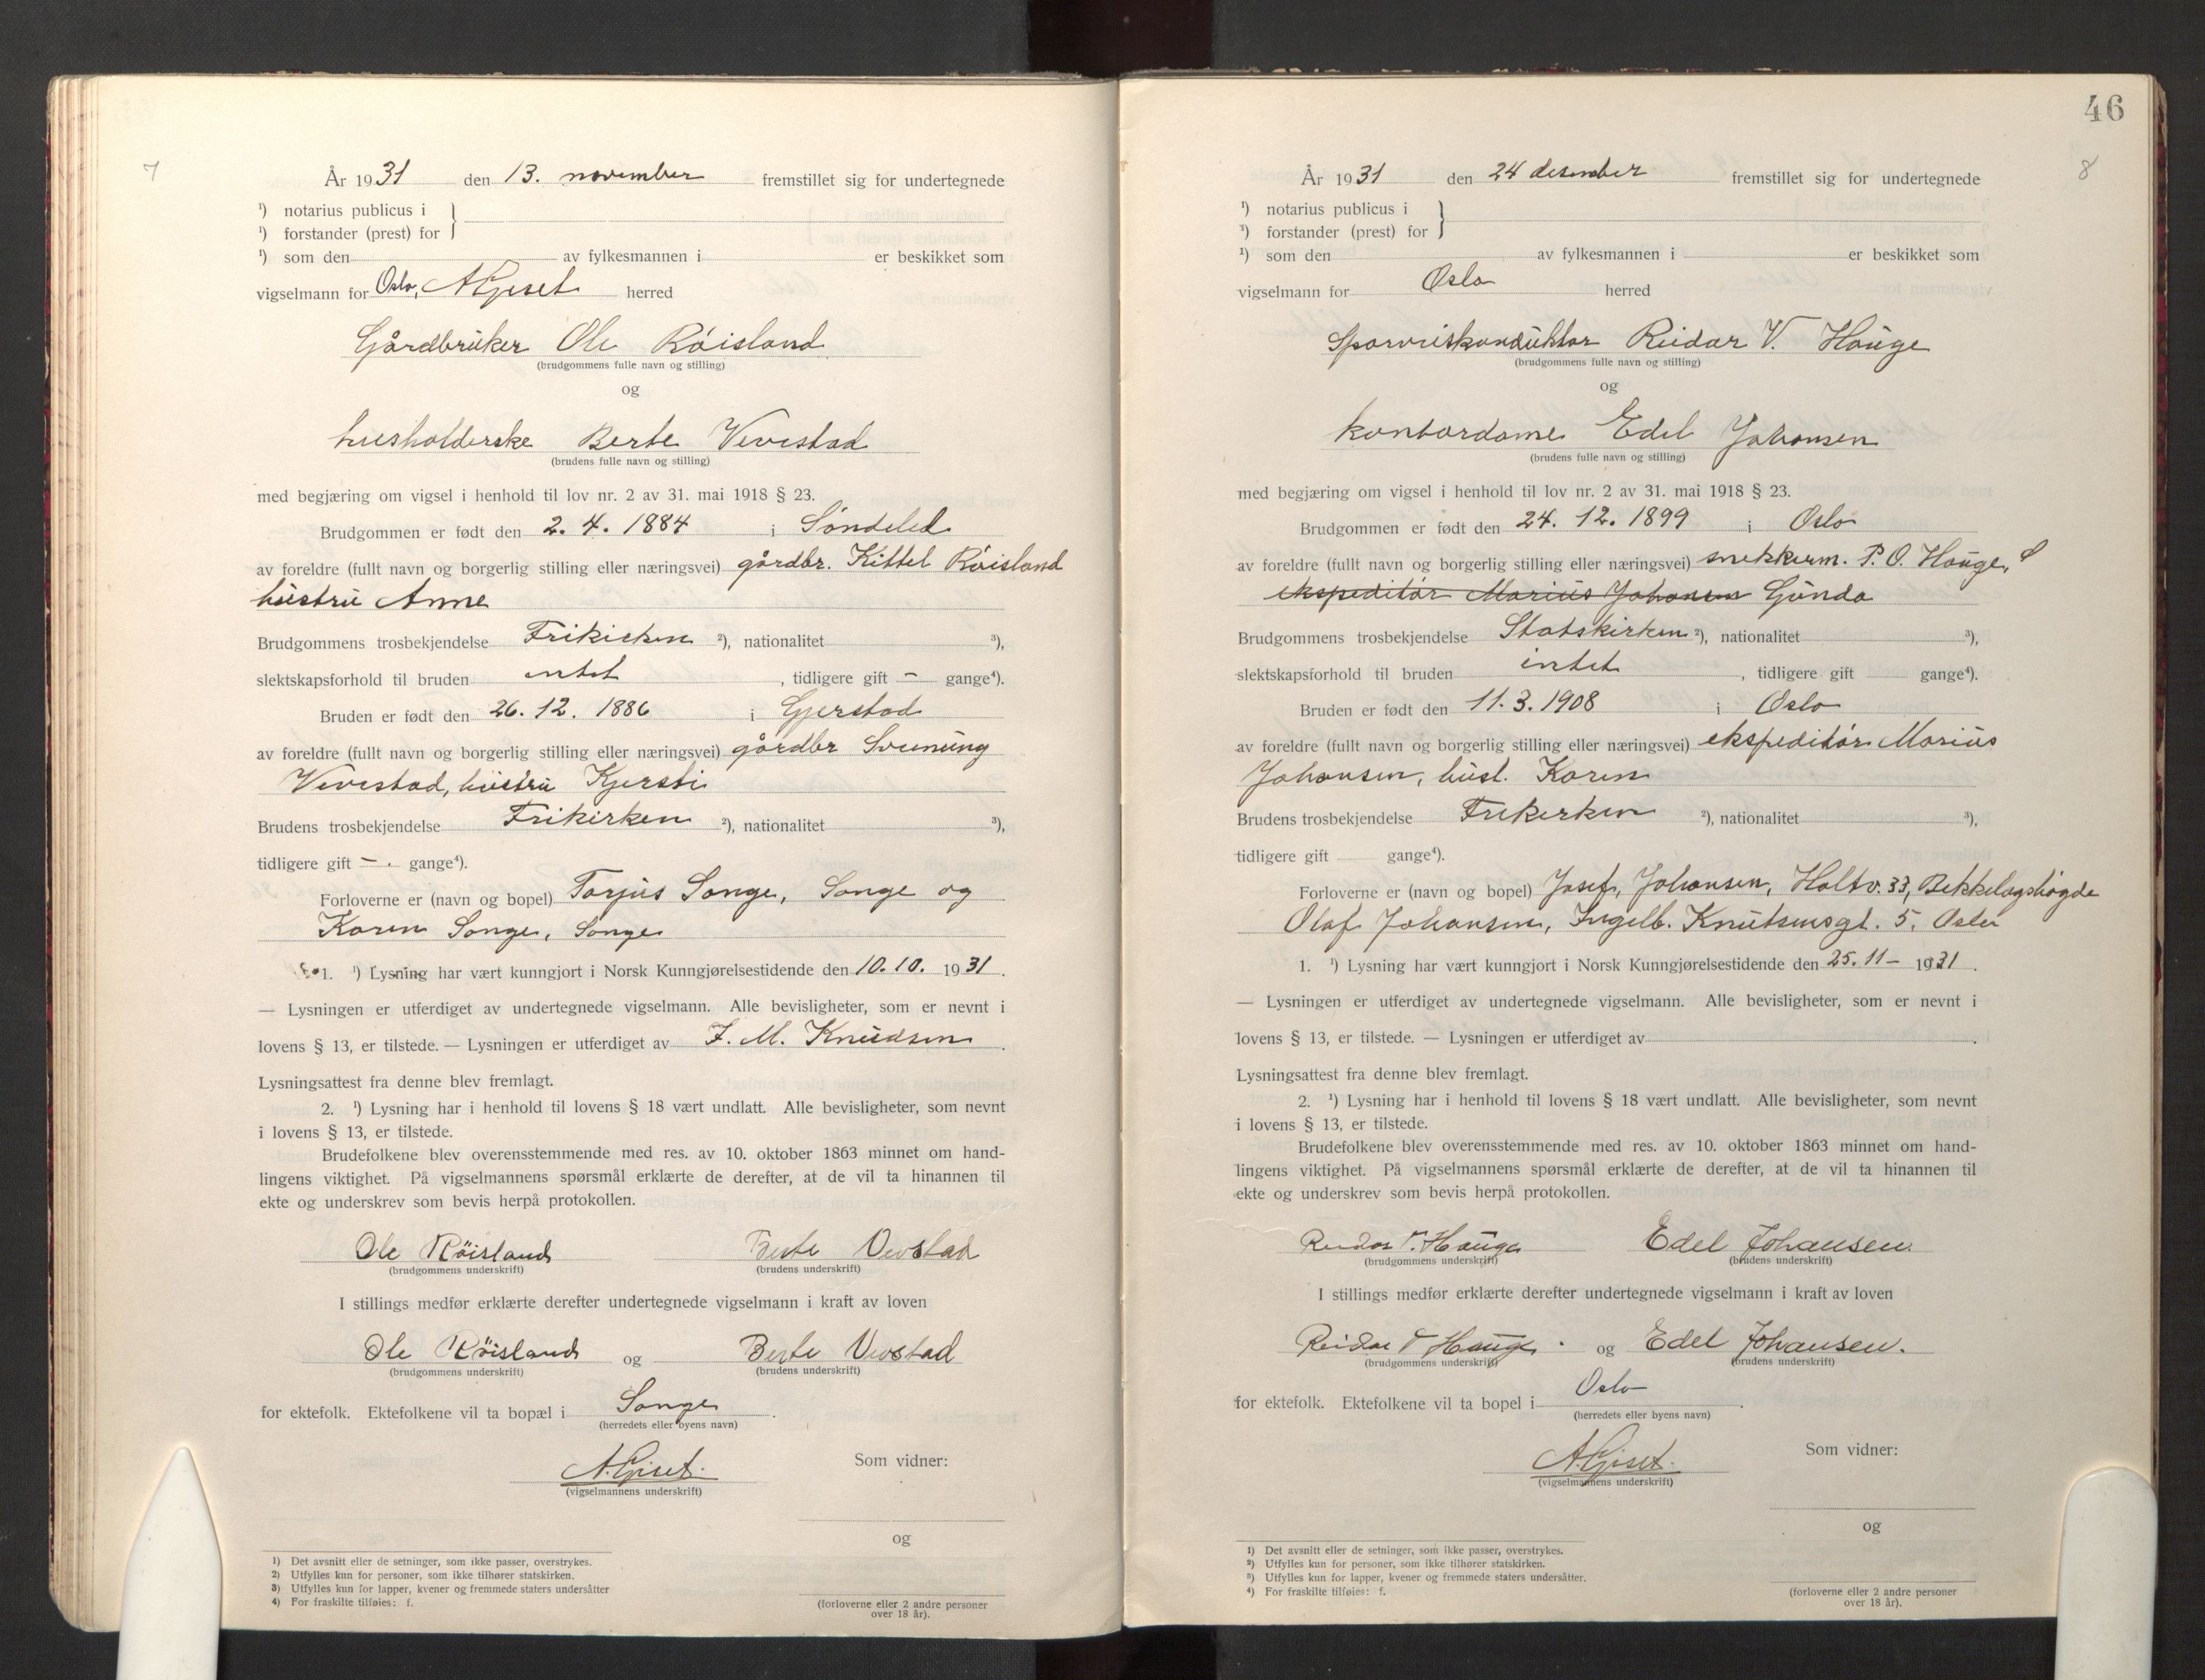 7
År 1931 den 13. november fremstillet sig for undertegnede
¹) notarius publicus i
¹) forstander (prest) for
¹) som den av fylkesmannen i er beskikket som
vigselmann for Oslo, A Gjeset herred
Gårdbruker Ole Röisland
(brudgommens fulle navn og stilling)
og
husholderske Berte Vevestad
(brudens fulle navn og stilling)
med begjæring om vigsel i henhold til lov nr. 2 av 31. mai 1918 § 23.
Brudgommen er født den 2. 4. 1884 i Söndeled
av foreldre (fullt navn og borgerlig stilling eller næringsvei) gårdbr. Kittel Röisland
hustru Anne
Brudgommens trosbekjendelse Frikirken ²), nationalitet ³),
slektskapsforhold til bruden intet , tidligere gift – gange⁴).
Bruden er født den 26. 12. 1886 i Gjerstad
av foreldre (fullt navn og borgerlig stilling eller næringsvei) gårdbr Sveinung
Vevestad, hustru Kjersti
Brudens trosbekjendelse Frikirken ²), nationalitet ³),
tidligere gift – . gange⁴).
Forloverne er (navn og bopel) Torjus Songe, Songe og
Karen Songe, Songe
1. ¹) Lysning har vært kunngjort i Norsk Kunngjørelsestidende den 10. 10. 1931 .
— Lysningen er utferdiget av undertegnede vigselmann. Alle bevisligheter, som er nevnt i
lovens § 13, er tilstede. — Lysningen er utferdiget av J. M. Knudsen .
Lysningsattest fra denne blev fremlagt.
2. ¹) Lysning har i henhold til lovens § 18 vært undlatt. Alle bevisligheter, som nevnt
i lovens § 13, er tilstede.
Brudefolkene blev overensstemmende med res. av 10. oktober 1863 minnet om hand-
lingens viktighet. På vigselmannens spørsmål erklærte de derefter, at de vil ta hinannen til
ekte og underskrev som bevis herpå protokollen.
Ole Röisland Berte Vevstad
(brudgommens underskrift) (brudens underskrift)
I stillings medfør erklærte derefter undertegnede vigselmann i kraft av loven
Ole Röisland og Berte Vevstad
(brudgommens underskrift) (brudens underskrift)
for ektefolk. Ektefolkene vil ta bopæl i Songe .
(herredets eller byens navn)
A. Gjeset. Som vidner:
(vigselmannens underskrift)
og
1) Det avsnitt eller de setninger, som ikke passer, overstrykes.
2) Utfylles kun for personer, som ikke tilhører statskirken.
3) Utfylles kun for lapper, kvener og fremmede staters undersåtter
4) For fraskilte tilføies: f.
(forloverne eller 2 andre personer
over 18 år).
46
8
År 1931 den 24 desember fremstillet sig for undertegnede
¹) notarius publicus i
¹) forstander (prest) for
¹) som den av fylkesmannen i er beskikket som
vigselmann for Oslo herred
Sporveiskonduktör Reidar V. Hauge
(brudgommens fulle navn og stilling)
og
kontordame Edel Johansen
(brudens fulle navn og stilling)
med begjæring om vigsel i henhold til lov nr. 2 av 31. mai 1918 § 23.
Brudgommen er født den 24. 12. 1899 i Oslo
av foreldre (fullt navn og borgerlig stilling eller næringsvei) snekkerm. P. O. Hauge,
ekspeditör Marius Johansen Gunda
Brudgommens trosbekjendelse Statskirken ²), nationalitet ³),
slektskapsforhold til bruden intet , tidligere gift gange⁴).
Bruden er født den 11. 3. 1908 i Oslo
av foreldre (fullt navn og borgerlig stilling eller næringsvei) ekspeditör Marius
Johansen, hust. Karen
Brudens trosbekjendelse Frikirken ²), nationalitet ³),
tidligere gift gange⁴).
Forloverne er (navn og bopel) Josef Johansen, Holtv. 33, Bekkelagshøgda
Olaf Johansen, Ingelb. Knutsensgt. 5, Oslo
1. ¹) Lysning har vært kunngjort i Norsk Kunngjørelsestidende den 25. 11 – 1931 .
— Lysningen er utferdiget av undertegnede vigselmann. Alle bevisligheter, som er nevnt i
lovens § 13, er tilstede. — Lysningen er utferdiget av .
Lysningsattest fra denne blev fremlagt.
2. ¹) Lysning har i henhold til lovens § 18 vært undlatt. Alle bevisligheter, som nevnt
i lovens § 13, er tilstede.
Brudefolkene blev overensstemmende med res. av 10. oktober 1863 minnet om hand-
lingens viktighet. På vigselmannens spørsmål erklærte de derefter, at de vil ta hinannen til
ekte og underskrev som bevis herpå protokollen.
Reidar V. Hauge Edel Johansen.
(brudgommens underskrift) (brudens underskrift)
I stillings medfør erklærte derefter undertegnede vigselmann i kraft av loven
Reidar V Hauge . og Edel Johansen.
(brudgommens underskrift) (brudens underskrift)
for ektefolk. Ektefolkene vil ta bopel i Oslo .
(herredets eller byens navn)
A. Gjeset. Som vidner:
(vigselmannens underskrift)
og
1) Det avsnitt eller de setninger, som ikke passer, overstrykes.
2) Utfylles kun for personer, som ikke tilhører statskirken.
3) Utfylles kun for lapper, kvener og fremmede staters undersåtter.
4) For fraskilte tilføies: f.
(forloverne eller 2 andre personer
over 18 år).